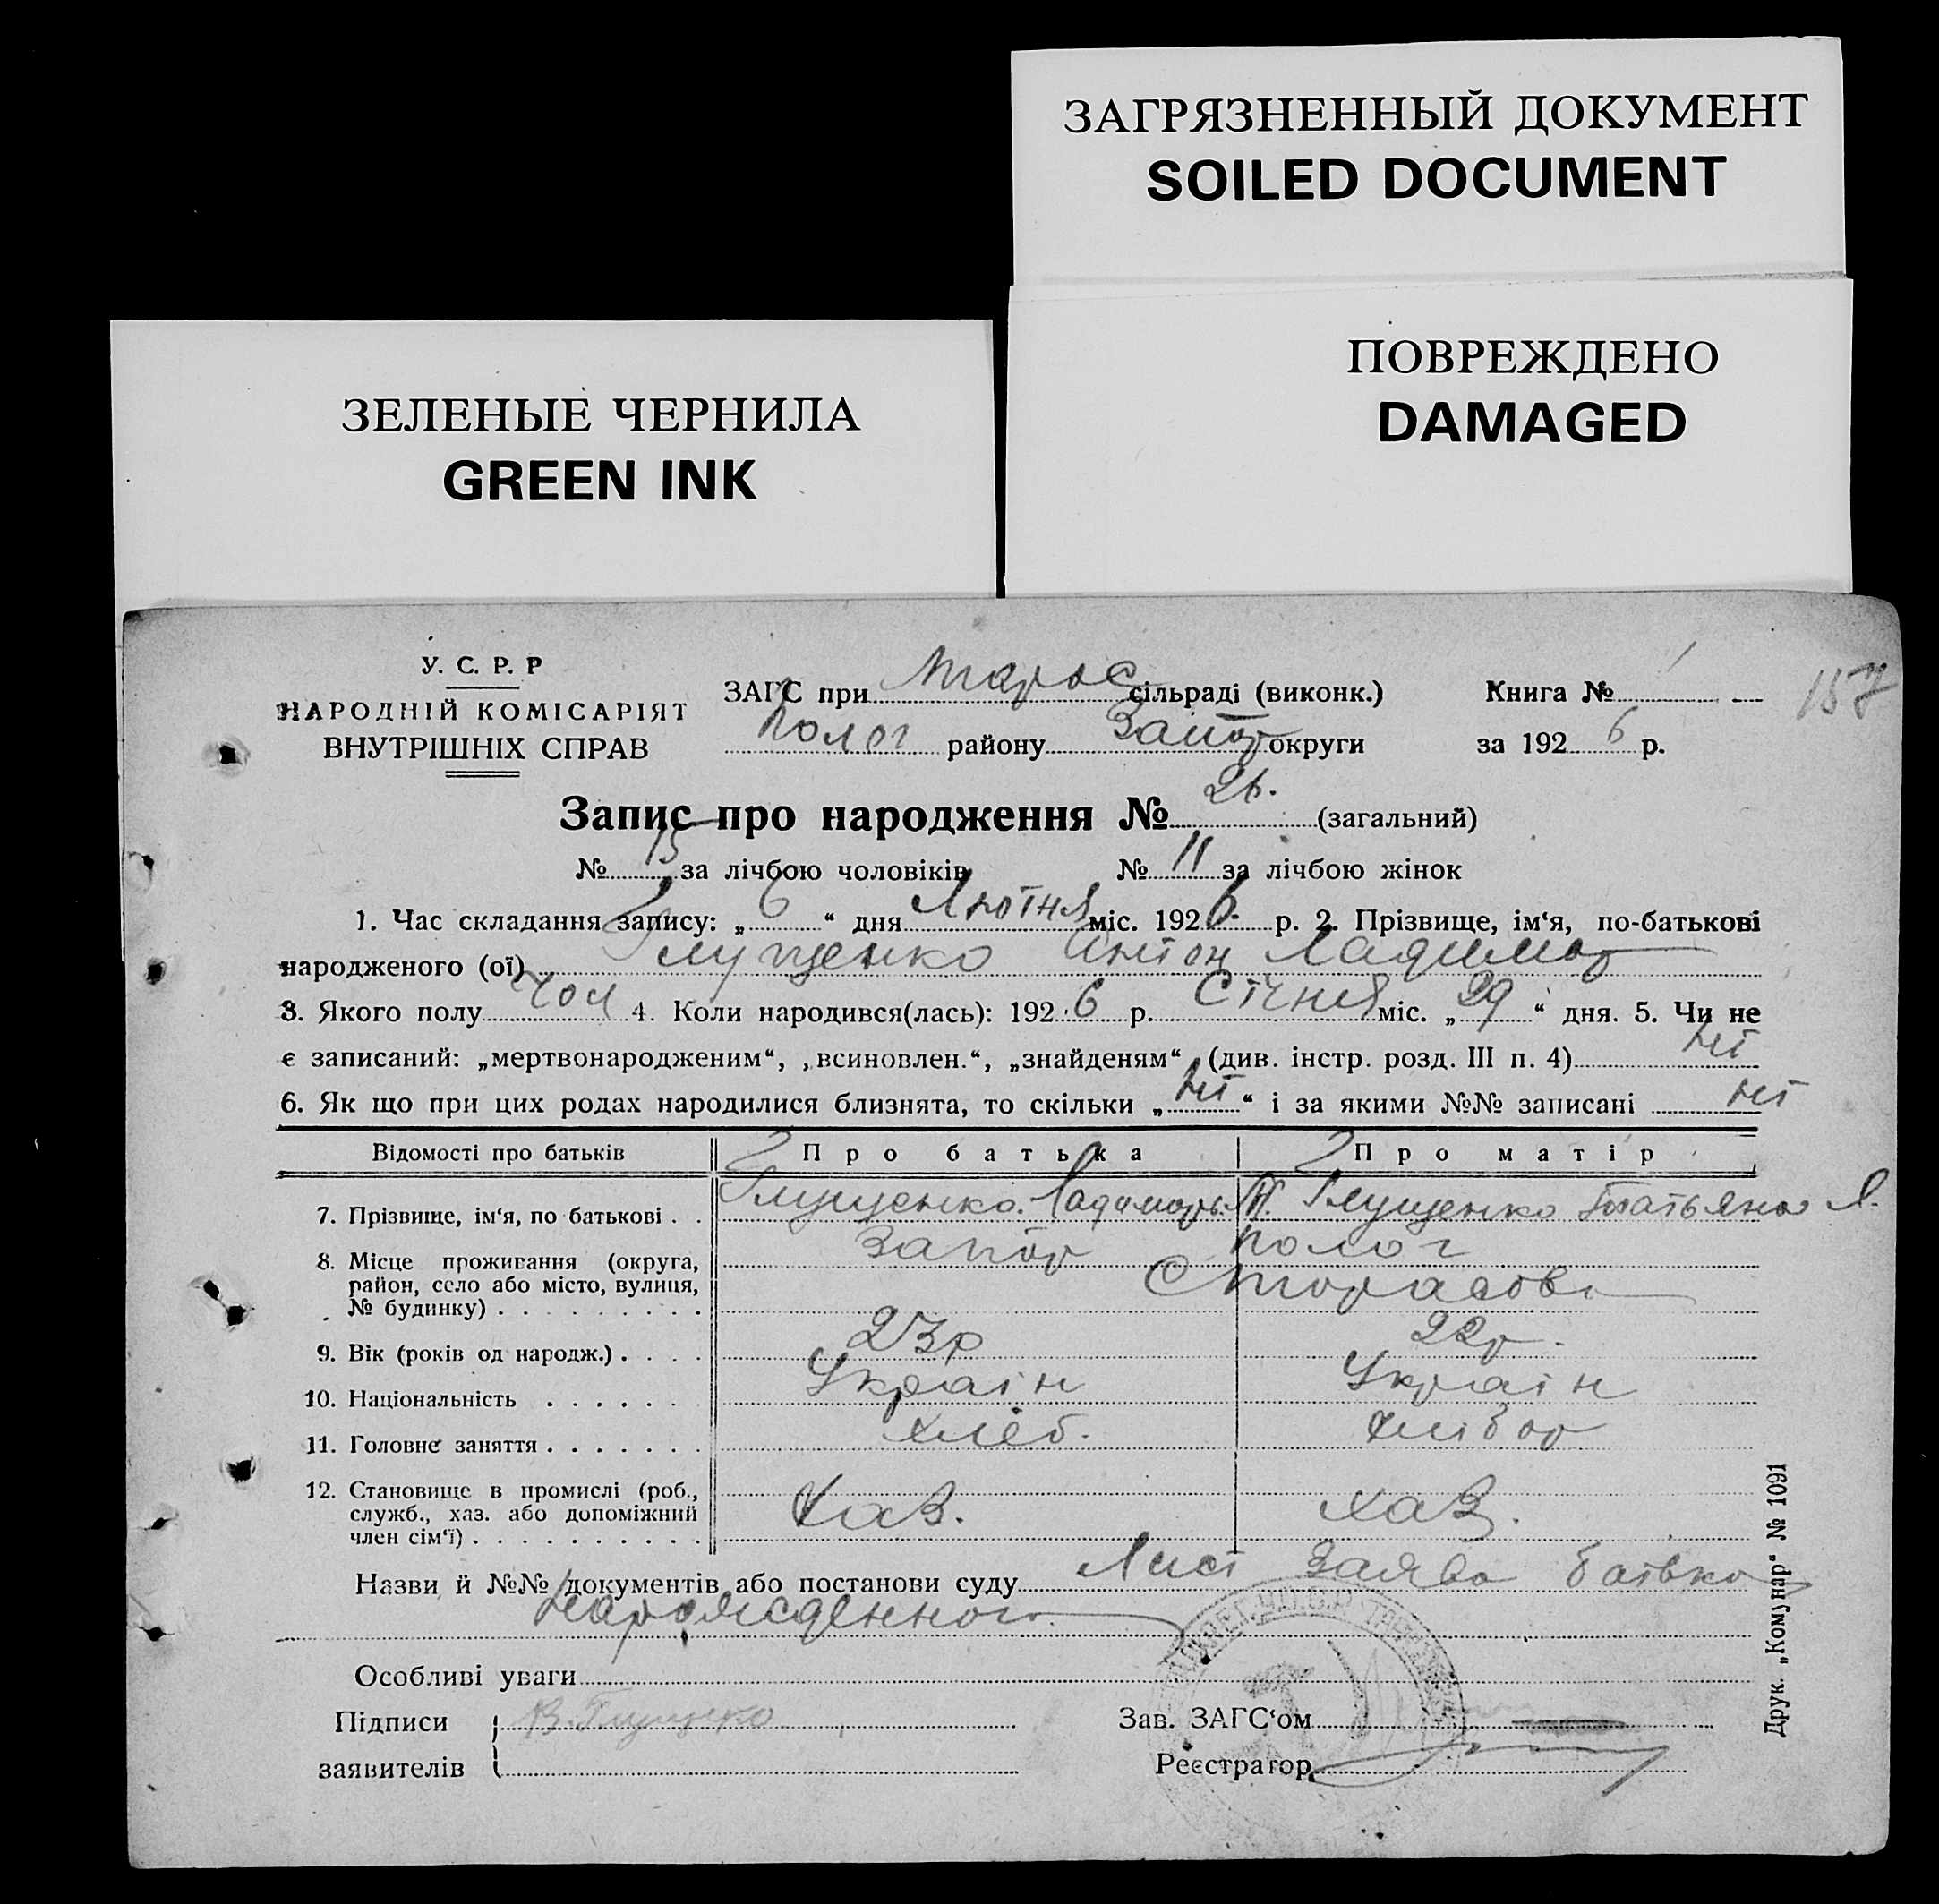 ЗАГРЯЗНЕННЫЙ ДОКУМЕНТ
SOILED DOCUMENT
ПОВРЕЖДЕНО
DAMAGED
ЗЕЛЕНЫЕ ЧЕРНИЛА
GREEN INK
У. С. Р. Р
НАРОДНІЙ КОМІСАРІЯТ
ВНУТРІШНІХ СПРАВ
ЗАГС при Тарас сільраді (виконк.)
Полог району Запор округи
Книга №
за 1926 р.
157
Запис про народження № 26. (загальний)
№ 15 за лічбою чоловіків № 11 за лічбою жінок
1. Час складання запису: „6“ дня Лютня міс. 1926 р. 2. Прізвище, ім‘я, по-батькові
народженого (ої) Глущенко Антон Ладимор
3. Якого полу Чол 4. Коли народився(лась): 1926 р. Січня міс. „29“ дня. 5. Чи не
є записаний: „мертвонародженим“, „всиновлен.“, „знайденям“ (див. інстр. розд. III п. 4) ні
6. Як що при цих родах народилися близнята, то скільки „ні“ і за якими №№ записані ні
Відомості про батьків Про батька Про матір
7. Прізвище, ім‘я, по батькові . . Глущенко Ладимор. Глущенко Татьяна Я.
8. Місце проживання (округа, Запор Полог
район, село або місто, вулиця, С Тарасовка
№ будинку) . . . . . . . . .
9. Вік (років од народж.) . . . . 23р 22р.
10. Національність . . . . . . Україн Україн
11. Головне заняття . . . . . . . хлеб. хлібор
12. Становище в промислі (роб.,
служб., хаз. або допоміжний Хаз. хаз.
член сім‘ї) . . . . . . . . . .
Назви й №№ документів або постанови суду Лист Заява батька
нарожденного
Особливі уваги
Підписи В. Глущенко Зав. ЗАГС‘ом
заявителів Реєстратор
Друк. „Комунар“ № 1091